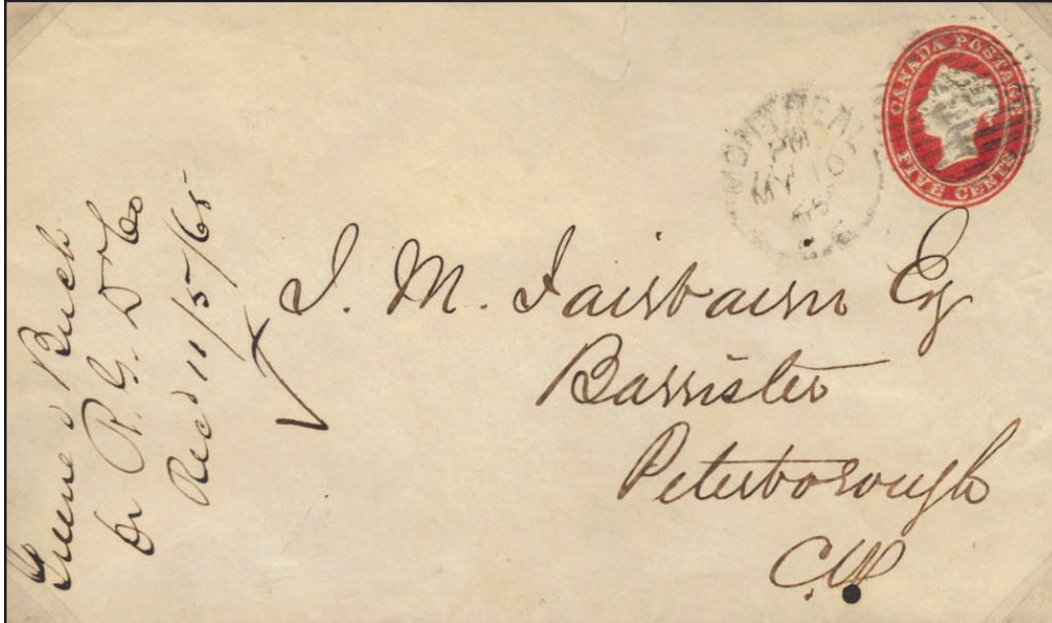 CANADA POSTAGE
FIVE CENTS
MONTREAL
PM
MY 10
65
J. M. Fairbairn Esq
Barrister
Peterborough
C.W
Greene
Dr P. G.
Rec'd 11/5/65